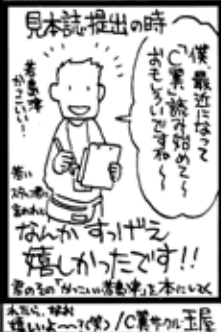 見本誌提出の時
僕、最近になって
「C翼」読み始めて〜
おもしろいですね〜〜
若島津
かっこいい〜!
若い
スタッフ君に
言われた
なんか すっげえ
嬉しかったです!!
君のその"かっこいい若島津"を本にしよく
嬉しいよ〜〜?(笑)/C翼サークル 玉尾